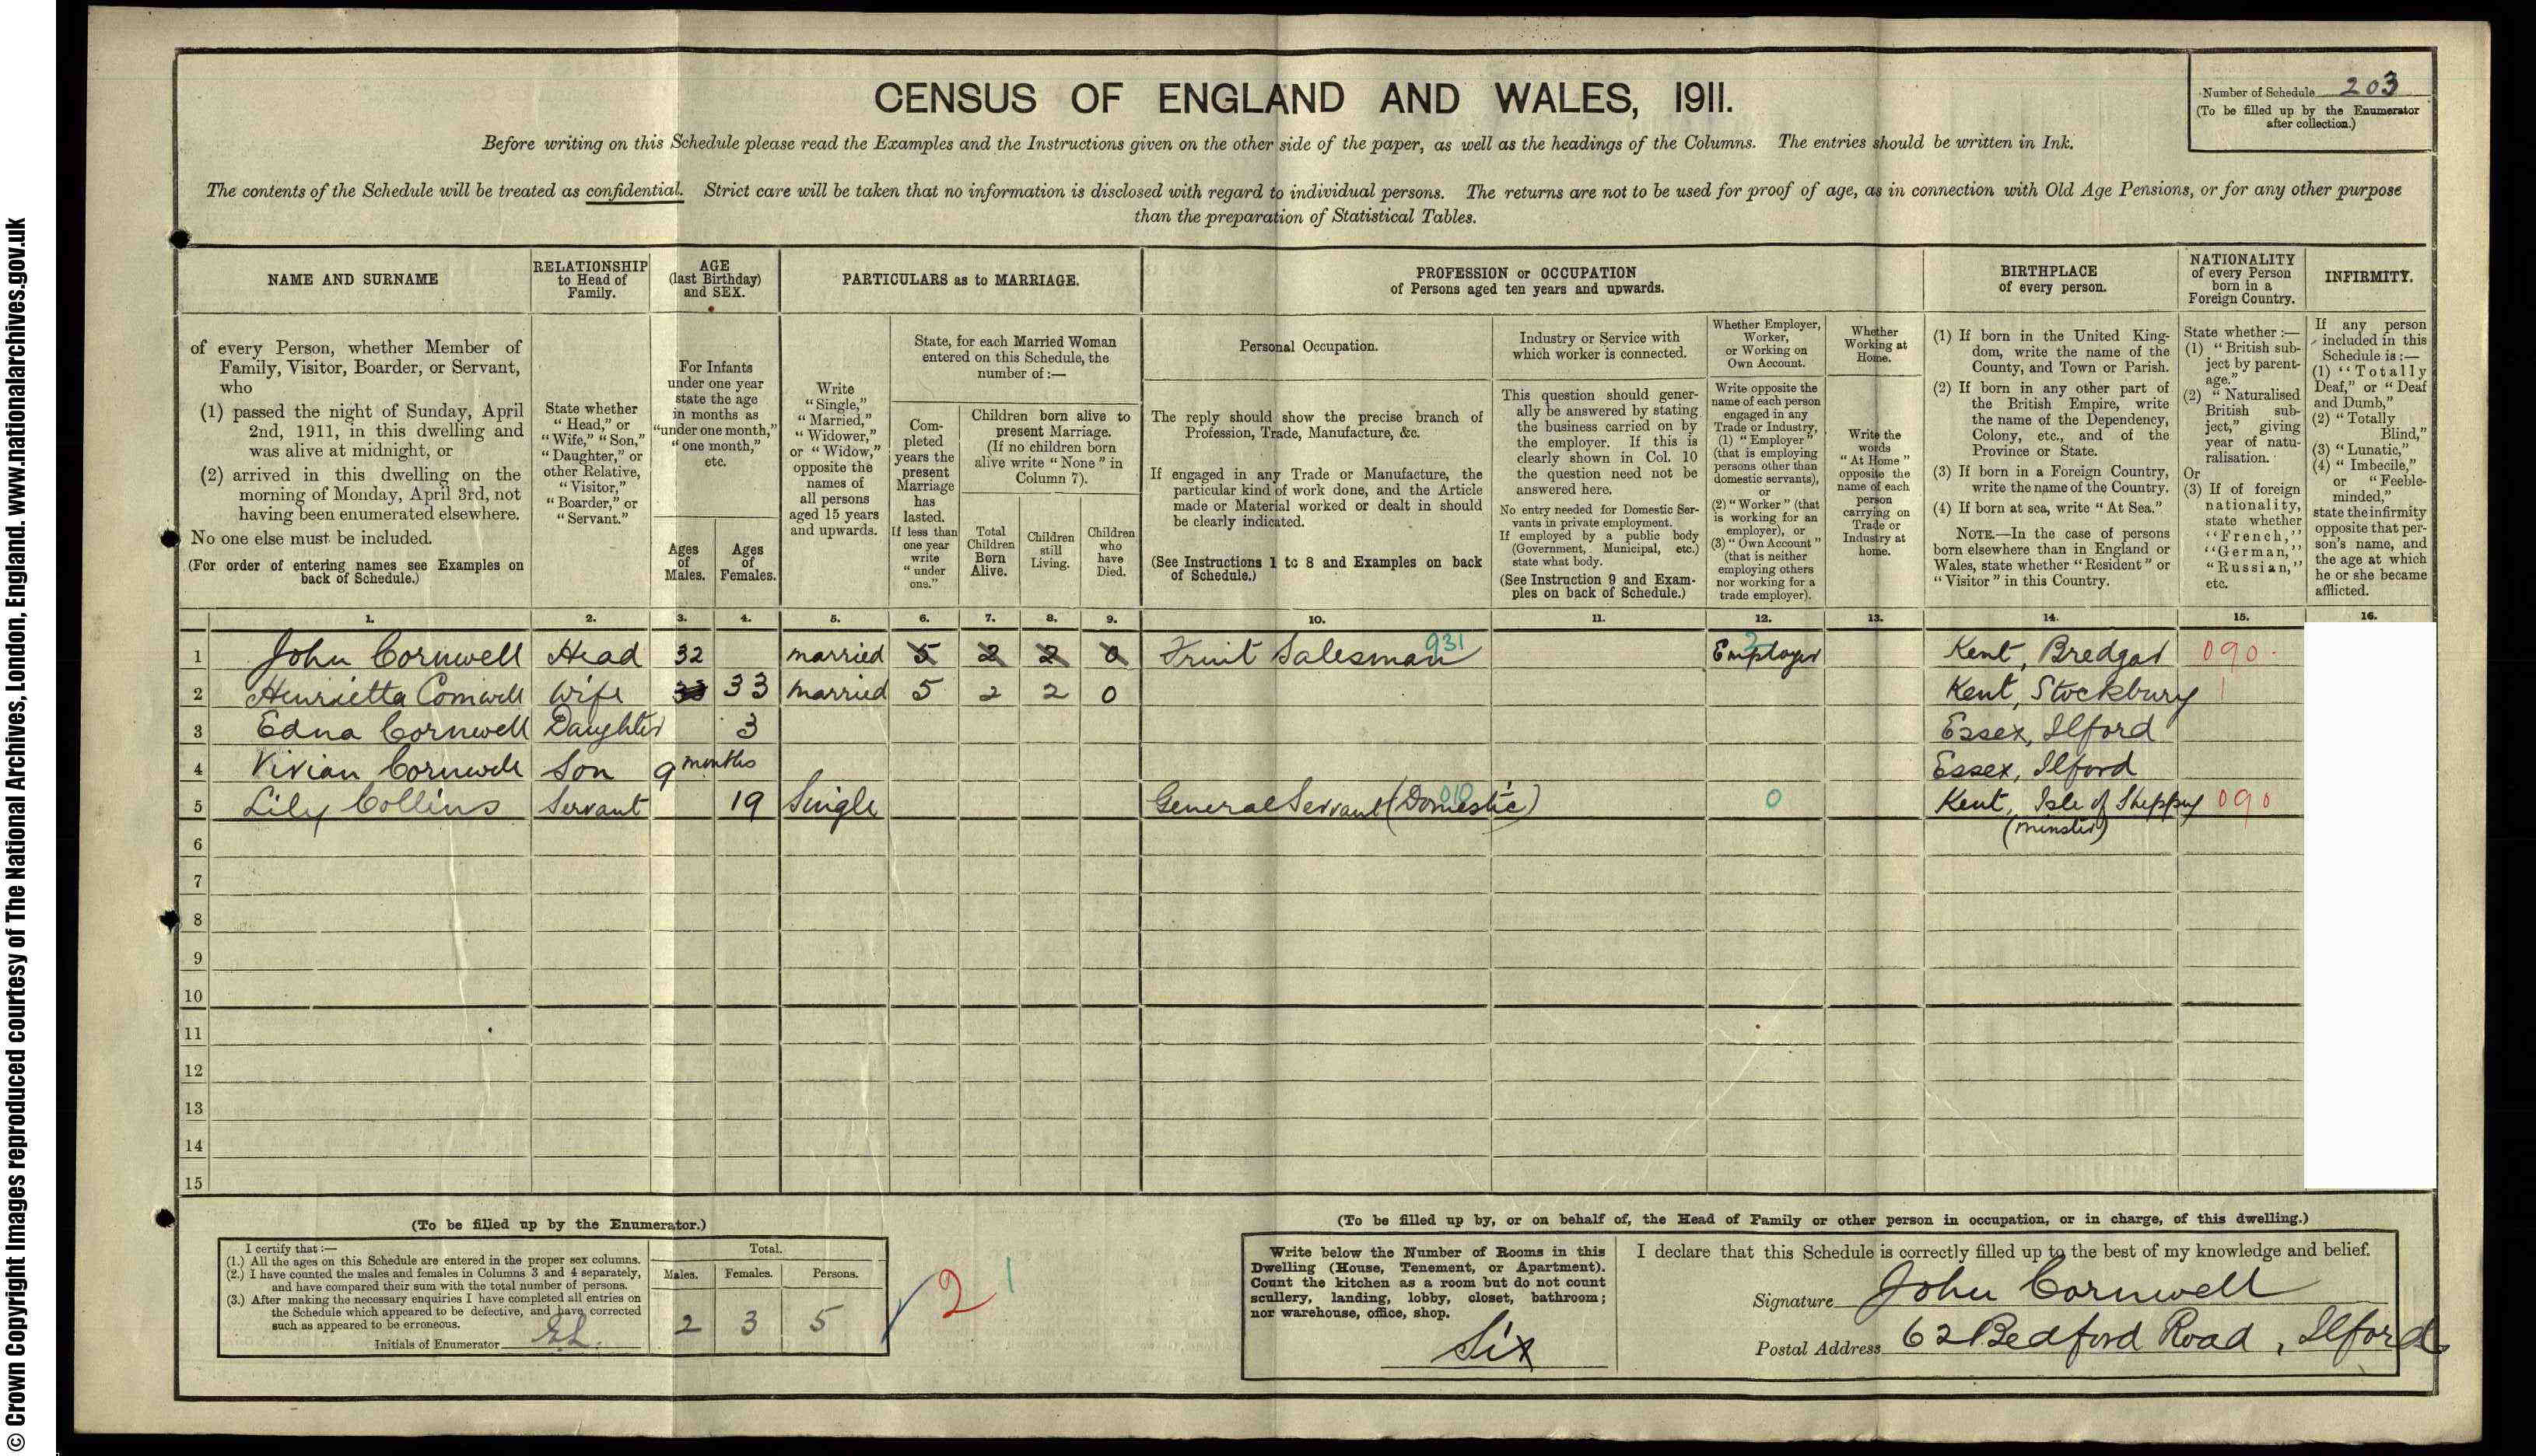 CENSUS OF ENGLAND AND WALES, 1911.
Number of Schedule 203
(To be filled up by the Enumerator
after collection.)
Before writing on this Schedule please read the Examples and the Instructions given on the other side of the paper, as well as the headings of the Columns. The entries should be written in Ink.
The contents of the Schedule will be treated as confidential. Strict care will be taken that no information is disclosed with regard to individual persons. The returns are not to be used for proof of age, as in connection with Old Age Pensions, or for any other purpose
than the preparation of Statistical Tables.
NAME AND SURNAME
of every Person, whether Member of
Family, Visitor, Boarder, or Servant,
who
(1) passed the night of Sunday, April
2nd, 1911, in this dwelling and
was alive at midnight, or
(2) arrived in this dwelling on the
morning of Monday, April 3rd, not
having been enumerated elsewhere.
No one else must be included.
(For order of entering names see Examples on
back of Schedule.)
RELATIONSHIP
to Head of
Family.
State whether
"Head," or
"Wife," "Son,"
"Daughter," or
other Relative,
"Visitor,"
"Boarder," or
"Servant."
AGE
(last Birthday)
and SEX.
For Infants
under one year
state the age
in months as
"under one month,"
"one month,"
etc.
Ages
of
Males.
Ages
of
Females.
PARTICULARS as to MARRIAGE.
Write
"Single,"
"Married,"
"Widower,"
or "Widow,"
opposite the
names of
all persons
aged 15 years
and upwards.
State, for each Married Woman
entered on this Schedule, the
number of:—
Com-
pleted
years the
present
Marriage
has
lasted.
If less than
one year
write
"under
one."
Children born alive to
present Marriage.
(If no children born
alive write "None" in
Column 7).
Total
Children
Born
Alive.
Children
still
Living.
Children
who
have
Died.
PROFESSION or OCCUPATION
of Persons aged ten years and upwards.
Personal Occupation.
The reply should show the precise branch of
Profession, Trade, Manufacture, &c.
If engaged in any Trade or Manufacture, the
particular kind of work done, and the Article
made or Material worked or dealt in should
be clearly indicated.
(See Instructions 1 to 8 and Examples on back
of Schedule.)
Industry or Service with
which worker is connected.
This question should gener-
ally be answered by stating
the business carried on by
the employer. If this is
clearly shown in Col. 10
the question need not be
answered here.
No entry needed for Domestic Ser-
vants in private employment.
If employed by a public body
(Government, Municipal, etc.)
state what body.
(See Instruction 9 and Exam-
ples on back of Schedule.)
Whether Employer,
Worker,
or Working on
Own Account.
Write opposite the
name of each person
engaged in any
Trade or Industry,
(1) "Employer"
(that is employing
persons other than
domestic servants),
or
(2) "Worker" (that
is working for an
employer), or
(3) "Own Account"
(that is neither
employing others
nor working for a
trade employer).
Whether
Working at
Home.
Write the
words
"At Home"
opposite the
name of each
person
carrying on
Trade or
Industry at
home.
BIRTHPLACE
of every person.
(1) If born in the United King-
dom, write the name of the
County, and Town or Parish.
(2) If born in any other part of
the British Empire, write
the name of the Dependency,
Colony, etc., and of the
Province or State.
(3) If born in a Foreign Country,
write the name of the Country.
(4) If born at sea, write "At Sea."
NOTE.—In the case of persons
born elsewhere than in England or
Wales, state whether "Resident" or
"Visitor" in this Country.
NATIONALITY
of every Person
born in a
Foreign Country.
State whether:—
(1) "British sub-
ject by parent-
age."
(2) "Naturalised
British sub-
ject," giving
year of natu-
ralisation.
Or
(3) If of foreign
nationality,
state whether
"French,"
"German,"
"Russian,"
etc.
INFIRMITY.
If any person
included in this
Schedule is:—
(1) "Totally
Deaf," or "Deaf
and Dumb,"
(2) "Totally
Blind,"
(3) "Lunatic,"
(4) "Imbecile,"
or "Feeble-
minded,"
state the infirmity
opposite that per-
son's name, and
the age at which
he or she became
afflicted.
1. 2. 3. 4. 5. 6. 7. 8. 9. 10. 11. 12. 13. 14. 15. 16.
1 John Cornwell Head 32 married 5 2 2 0 Fruit Salesman 931 Employer Kent, Bredgar 090
2 Henrietta Cornwell Wife 33 33 married 5 2 2 0 Kent, Stockbury 1
3 Edna Cornwell Daughter 3 Essex, Ilford
4 Vivian Cornwell Son 9 months Essex, Ilford
5 Lily Collins Servant 19 Single General Servant (Domestic) 010 0 Kent, Isle of Sheppy 090
(Minster)
6
7
8
9
10
11
12
13
14
15
(To be filled up by the Enumerator.)
I certify that:—
(1.) All the ages on this Schedule are entered in the proper sex columns.
(2.) I have counted the males and females in Columns 3 and 4 separately,
and have compared their sum with the total number of persons.
(3.) After making the necessary enquiries I have completed all entries on
the Schedule which appeared to be defective, and have corrected
such as appeared to be erroneous.
Initials of Enumerator
Total.
Males. Females. Persons.
2 3 5
2 1
(To be filled up by, or on behalf of, the Head of Family or other person in occupation, or in charge, of this dwelling.)
Write below the Number of Rooms in this
Dwelling (House, Tenement, or Apartment).
Count the kitchen as a room but do not count
scullery, landing, lobby, closet, bathroom;
nor warehouse, office, shop.
Six
I declare that this Schedule is correctly filled up to the best of my knowledge and belief.
Signature John Cornwell
Postal Address 62 Bedford Road, Ilford
© Crown Copyright Images reproduced courtesy of The National Archives, London, England. www.nationalarchives.gov.uk